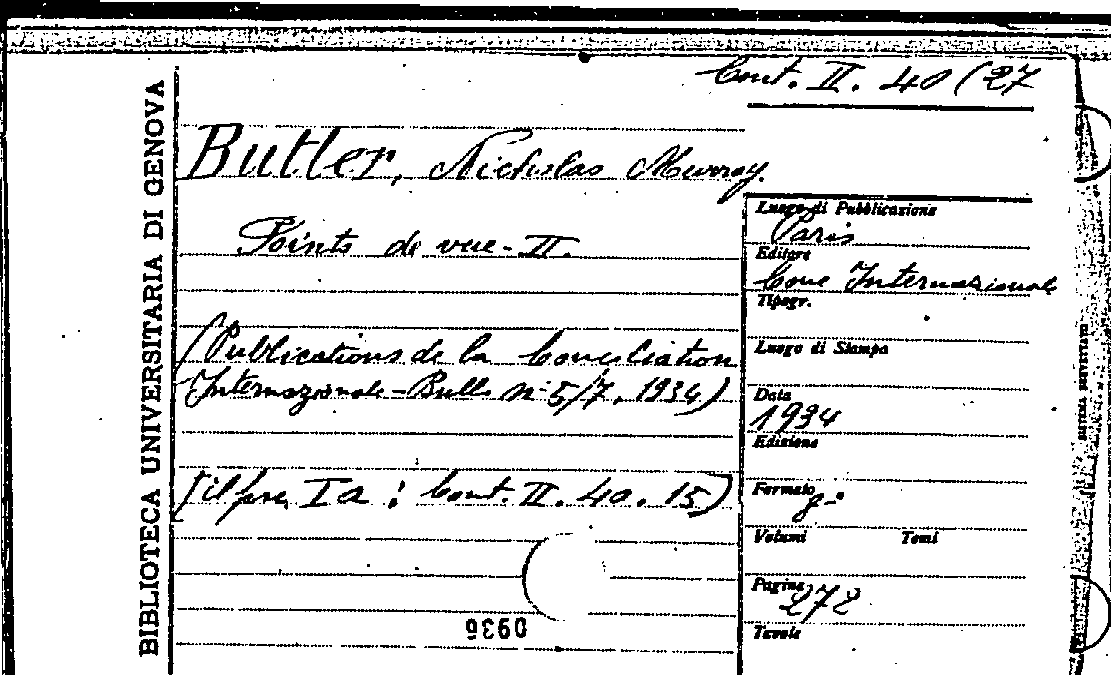 Cont. II. 40 (27
BIBLIOTECA UNIVERSITARIA DI GENOVA
Butler, Nicholas Murray.
Points de vue - II.
(Publications de la Conciliation
Internazionale - Bull. n. 5/7, 1934)
(il fasc. Ia : Cont. II. 40. 15)
0936
Luogo di Pubblicazione
Paris
Editore
Conc Internazionale
Tipogr.
Luogo di Stampa
Data
1934
Edizione
Formato
8°
Volumi Tomi
Pagine 272
Tavole